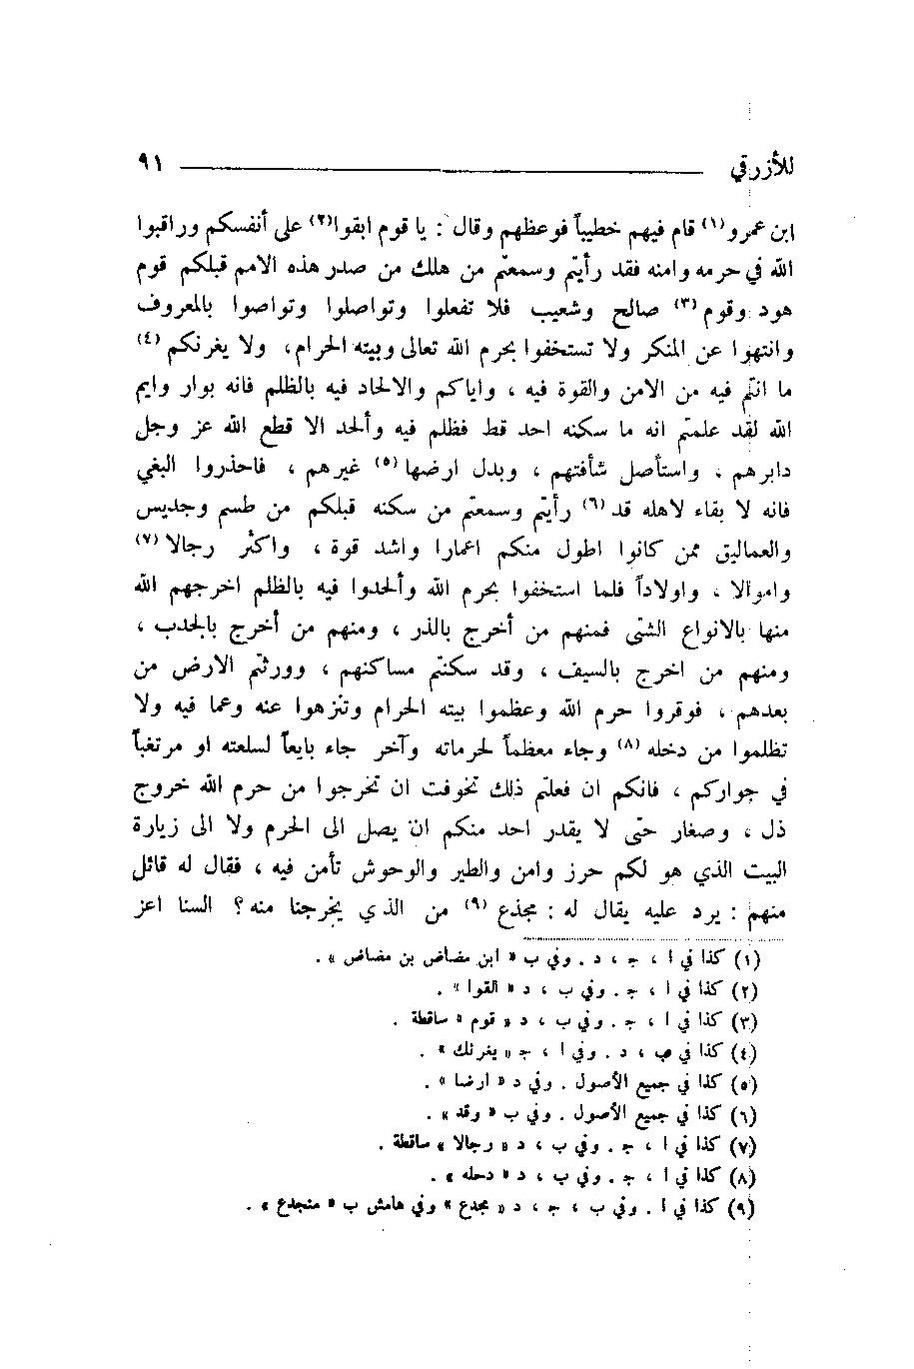 للأزرقي ٩١
ابن عمرو(١) قام فيهم خطيباً فوعظهم وقال : يا قوم ابقوا(٢) على أنفسكم وراقبوا
الله في حرمه وامنه فقد رأيتم وسمعتم من هلك من صدر هذه الامم قبلكم قوم
هود وقوم (٣) صالح وشعيب فلا تفعلوا وتواصلوا وتواصوا بالمعروف
وانتهوا عن المنكر ولا تستخفوا بحرم الله تعالى وبيته الحرام، ولا يغرنكم (٤)
ما انتم فيه من الامن والقوة فيه ، واياكم والالحاد فيه بالظلم فانه بوار وايم
الله لقد علمتم انه ما سكنه احد قط فظلم فيه وألحد الا قطع الله عز وجل
دابرهم ، واستأصل شأفتهم ، وبدل ارضها (٥) غيرهم ، فاحذروا البغي
فانه لا بقاء لاهله قد (٦) رأيتم وسمعتم من سكنه قبلكم من طسم وجديس
والعماليق ممن كانوا اطول منكم اعمارا واشد قوة ، واكثر رجالا (٧)
واموالا ، واولاداً فلما استخفوا بحرم الله وألحدوا فيه بالظلم اخرجهم الله
منها بالانواع الشتى فمنهم من أخرج بالذر ، ومنهم من أخرج بالجدب ،
ومنهم من اخرج بالسيف ، وقد سكنتم مساكنهم ، وورثتم الارض من
بعدهم ، فوقروا حرم الله وعظموا بيته الحرام وتنزهوا عنه وعما فيه ولا
تظلموا من دخله (٨) وجاء معظماً لحرماته وآخر جاء بايعاً لسلعته او مرتغباً
في جواركم ، فانكم ان فعلتم ذلك تخوفت ان تخرجوا من حرم الله خروج
ذل ، وصغار حتى لا يقدر احد منكم ان يصل الى الحرم ولا الى زيارة
البيت الذي هو لكم حرز وامن والطير والوحوش تأمن فيه ، فقال له قائل
منهم : يرد عليه يقال له : مجذع (٩) من الذي يخرجنا منه ؟ السنا اعز
(١) كذا في ا ، جـ ، د . وفي ب « ابن مضاض بن مضاض » .
(٢) كذا في ا ، جـ . وفي ب ، د « القوا » .
(٣) كذا في ا ، جـ . وفي ب ، د « قوم » ساقطة .
(٤) كذا في ب ، د . وفي ا ، جـ « يغرنك » .
(٥) كذا في جميع الأصول . وفي د « ارضا » .
(٦) كذا في جميع الأصول . وفي ب « وقد » .
(٧) كذا في ا ، جـ . وفي ب ، د « رجالا » ساقطة .
(٨) كذا في ا ، جـ . وفي ب ، د « دحله » .
(٩) كذا في ا . وفي ب ، جـ ، د « مجدع » وفي هامش ب « منجدع » .